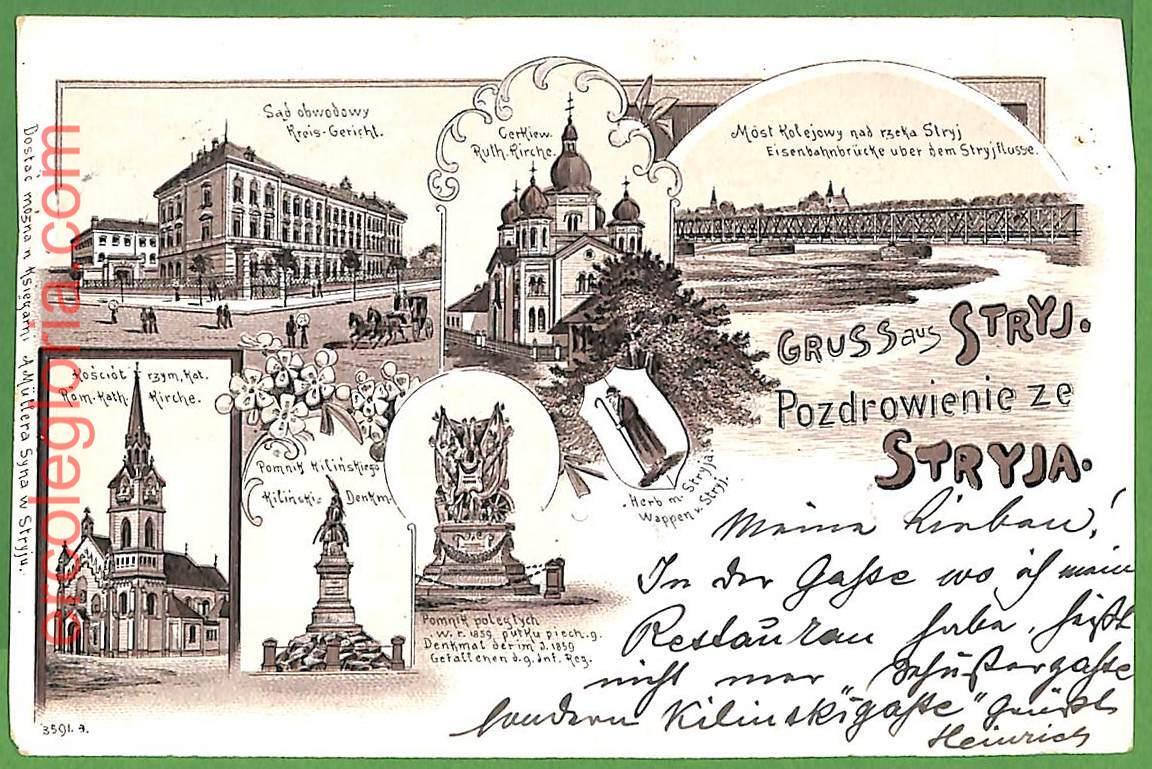 Sąd obwodowy
Kreis-Gericht.
Cerkiew.
Ruth. Kirche.
Móst Kolejowy nad rzeka Stryj
Eisenbahnbrücke uber dem Stryjflusse.
Gruss aus Stryj.
Pozdrowienie ze
Stryja.
Kościół rzym. Kat.
Röm. Kath. Kirche.
Pomnik Kilińskiego
Kiliński- Denkm.
Pomnik poległych
w. r. 1859 pułku piech. 9.
Denkmal der im J. 1859
Gefallenen d. 9. Inf. Reg.
Herb m. Stryja.
Wappen v. Stryj.
Meine Lieben!
In der Gasse wo ich mein
Restauran habe, heißt
nicht mer Schustergasse
sondern "Kilinskigasse" grüßt
Heinrich
Dostać można w Księgarni A. Müllera Syna w Stryju.
3591. a.
ercolegloria.com